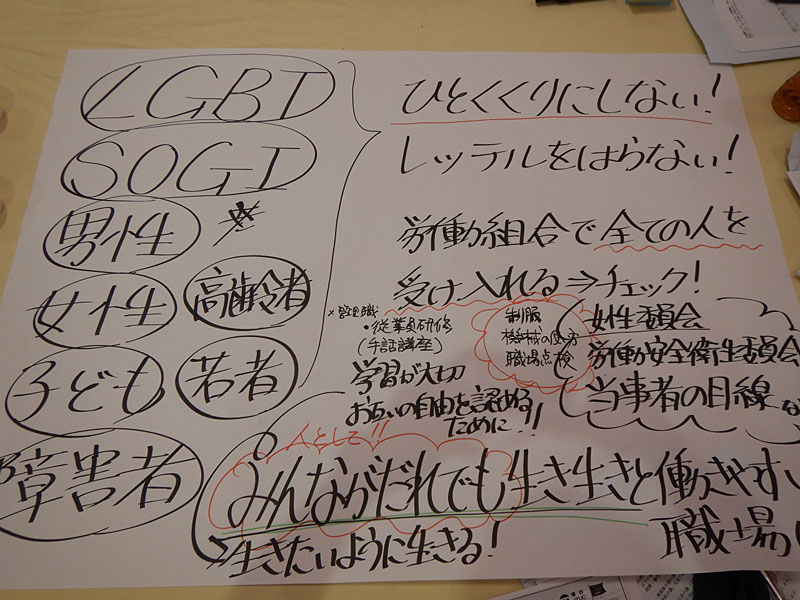 LGBT
SOGI
男性
女性 高齢者
子ども 若者
障害者
ひとくくりにしない!
レッテルをはらない!
労働組合で全ての人を
受け入れる⇒チェック!
×管理職
・従業員研修
(手話講座)
学習が大切
お互いの自由を認める
ために!!
制服
機械の使い方
職場点検
女性委員会
労働安全衛生委員会
当事者の目線
人として!!
みんながだれでも生き生きと働きやすい
職場
生きたいように生きる!